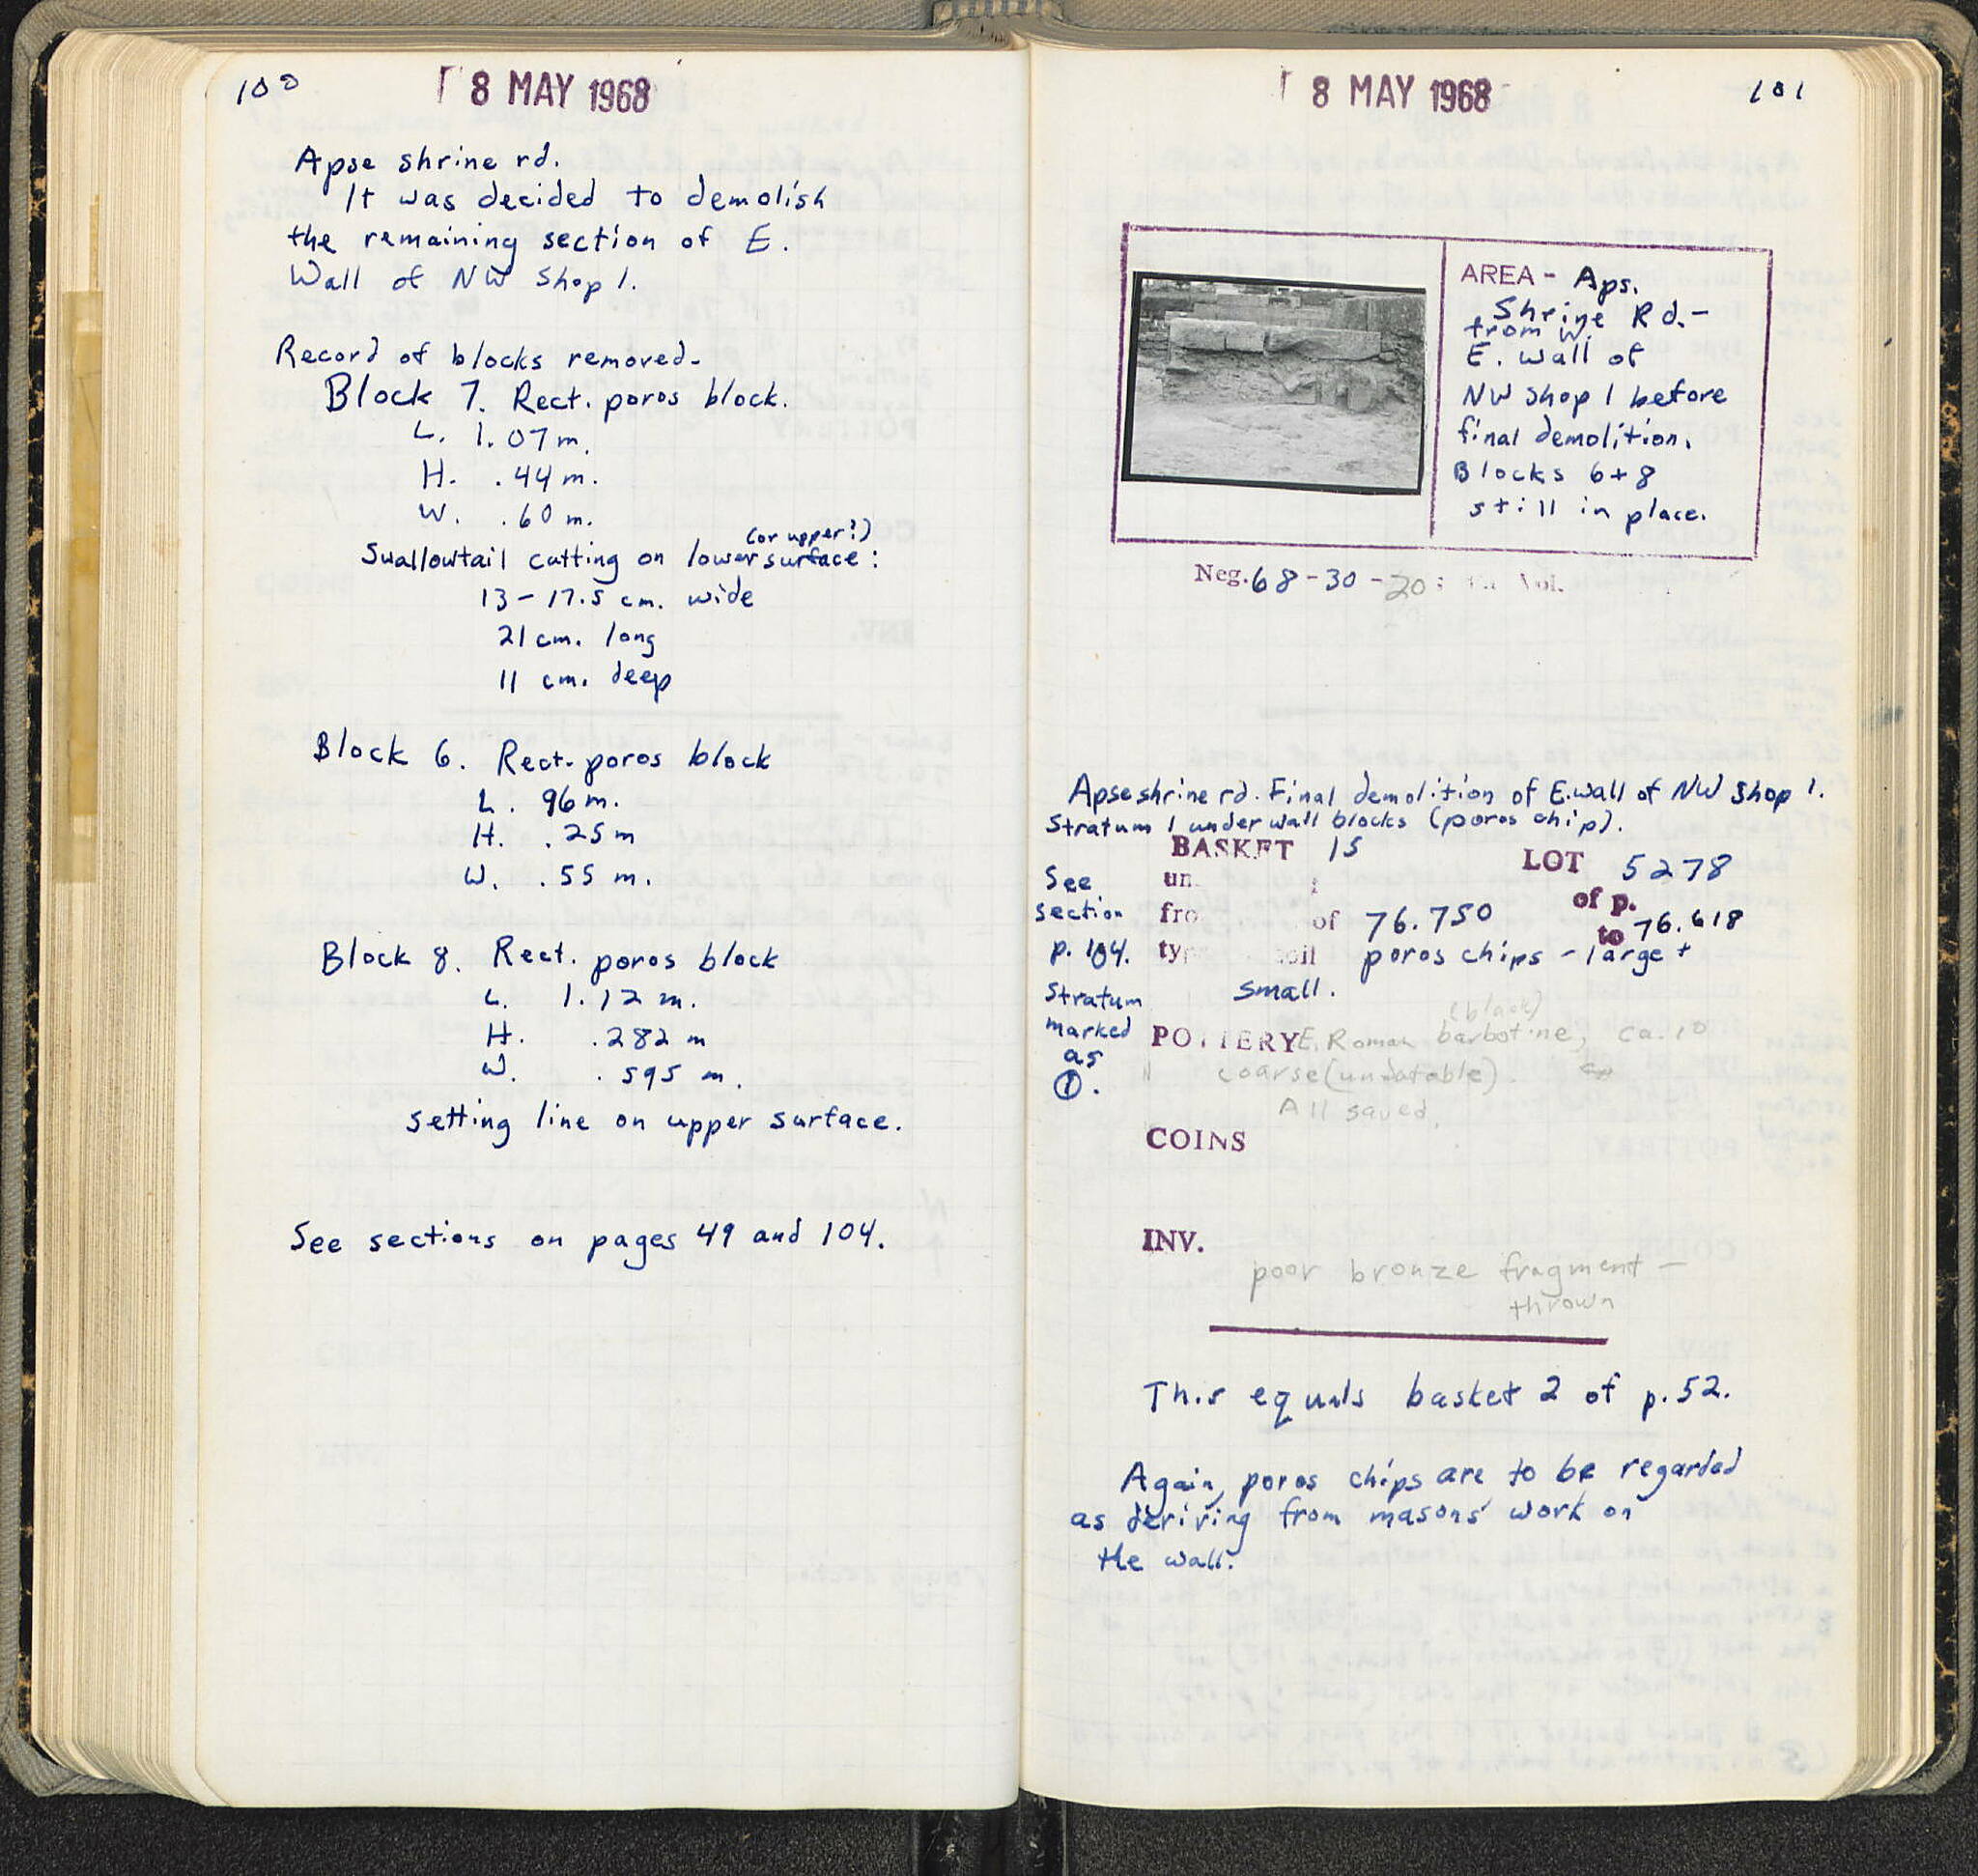 100
8 MAY 1968
Apse shrine rd.
It was decided to demolish
the remaining section of E.
Wall of NW Shop 1.
Record of blocks removed-
Block 7. Rect. poros block.
L. 1.07 m.
H. .44 m.
W. .60 m.
(or upper?)
Swallowtail cutting on lower surface:
13-17.5 cm. wide
21 cm. long
11 cm. deep
Block 6. Rect. poros block
L. 96 m.
H. .25 m
W. .55 m.
Block 8. Rect. poros block
L. 1.12 m.
H. .282 m
W. .595 m.
setting line on upper surface.
See sections on pages 49 and 104.
8 MAY 1968
101
AREA - Aps.
Shrine Rd.-
from W.
E. wall of
NW Shop 1 before
final demolition.
Blocks 6+8
still in place.
Neg. 68-30-20: Vol.
Apse shrine rd. Final demolition of E. wall of NW Shop 1.
Stratum 1 under wall blocks (poros chip).
BASKET 15 LOT 5278
See un of p.
section fro of 76.750 to 76.618
p. 104. typ soil poros chips - large +
small.
Stratum
marked
as
①.
(black)
POTTERY E. Roman barbotine, ca. 10
coarse (undatable).
All saved.
COINS
INV.
poor bronze fragment -
thrown
This equals basket 2 of p. 52.
Again, poros chips are to be regarded
as deriving from masons' work on
the wall.